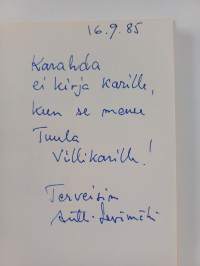 16.9.85
Karahda
ei kirja Karille,
kun se menee
Tuula
Villikarille!
Terveisin